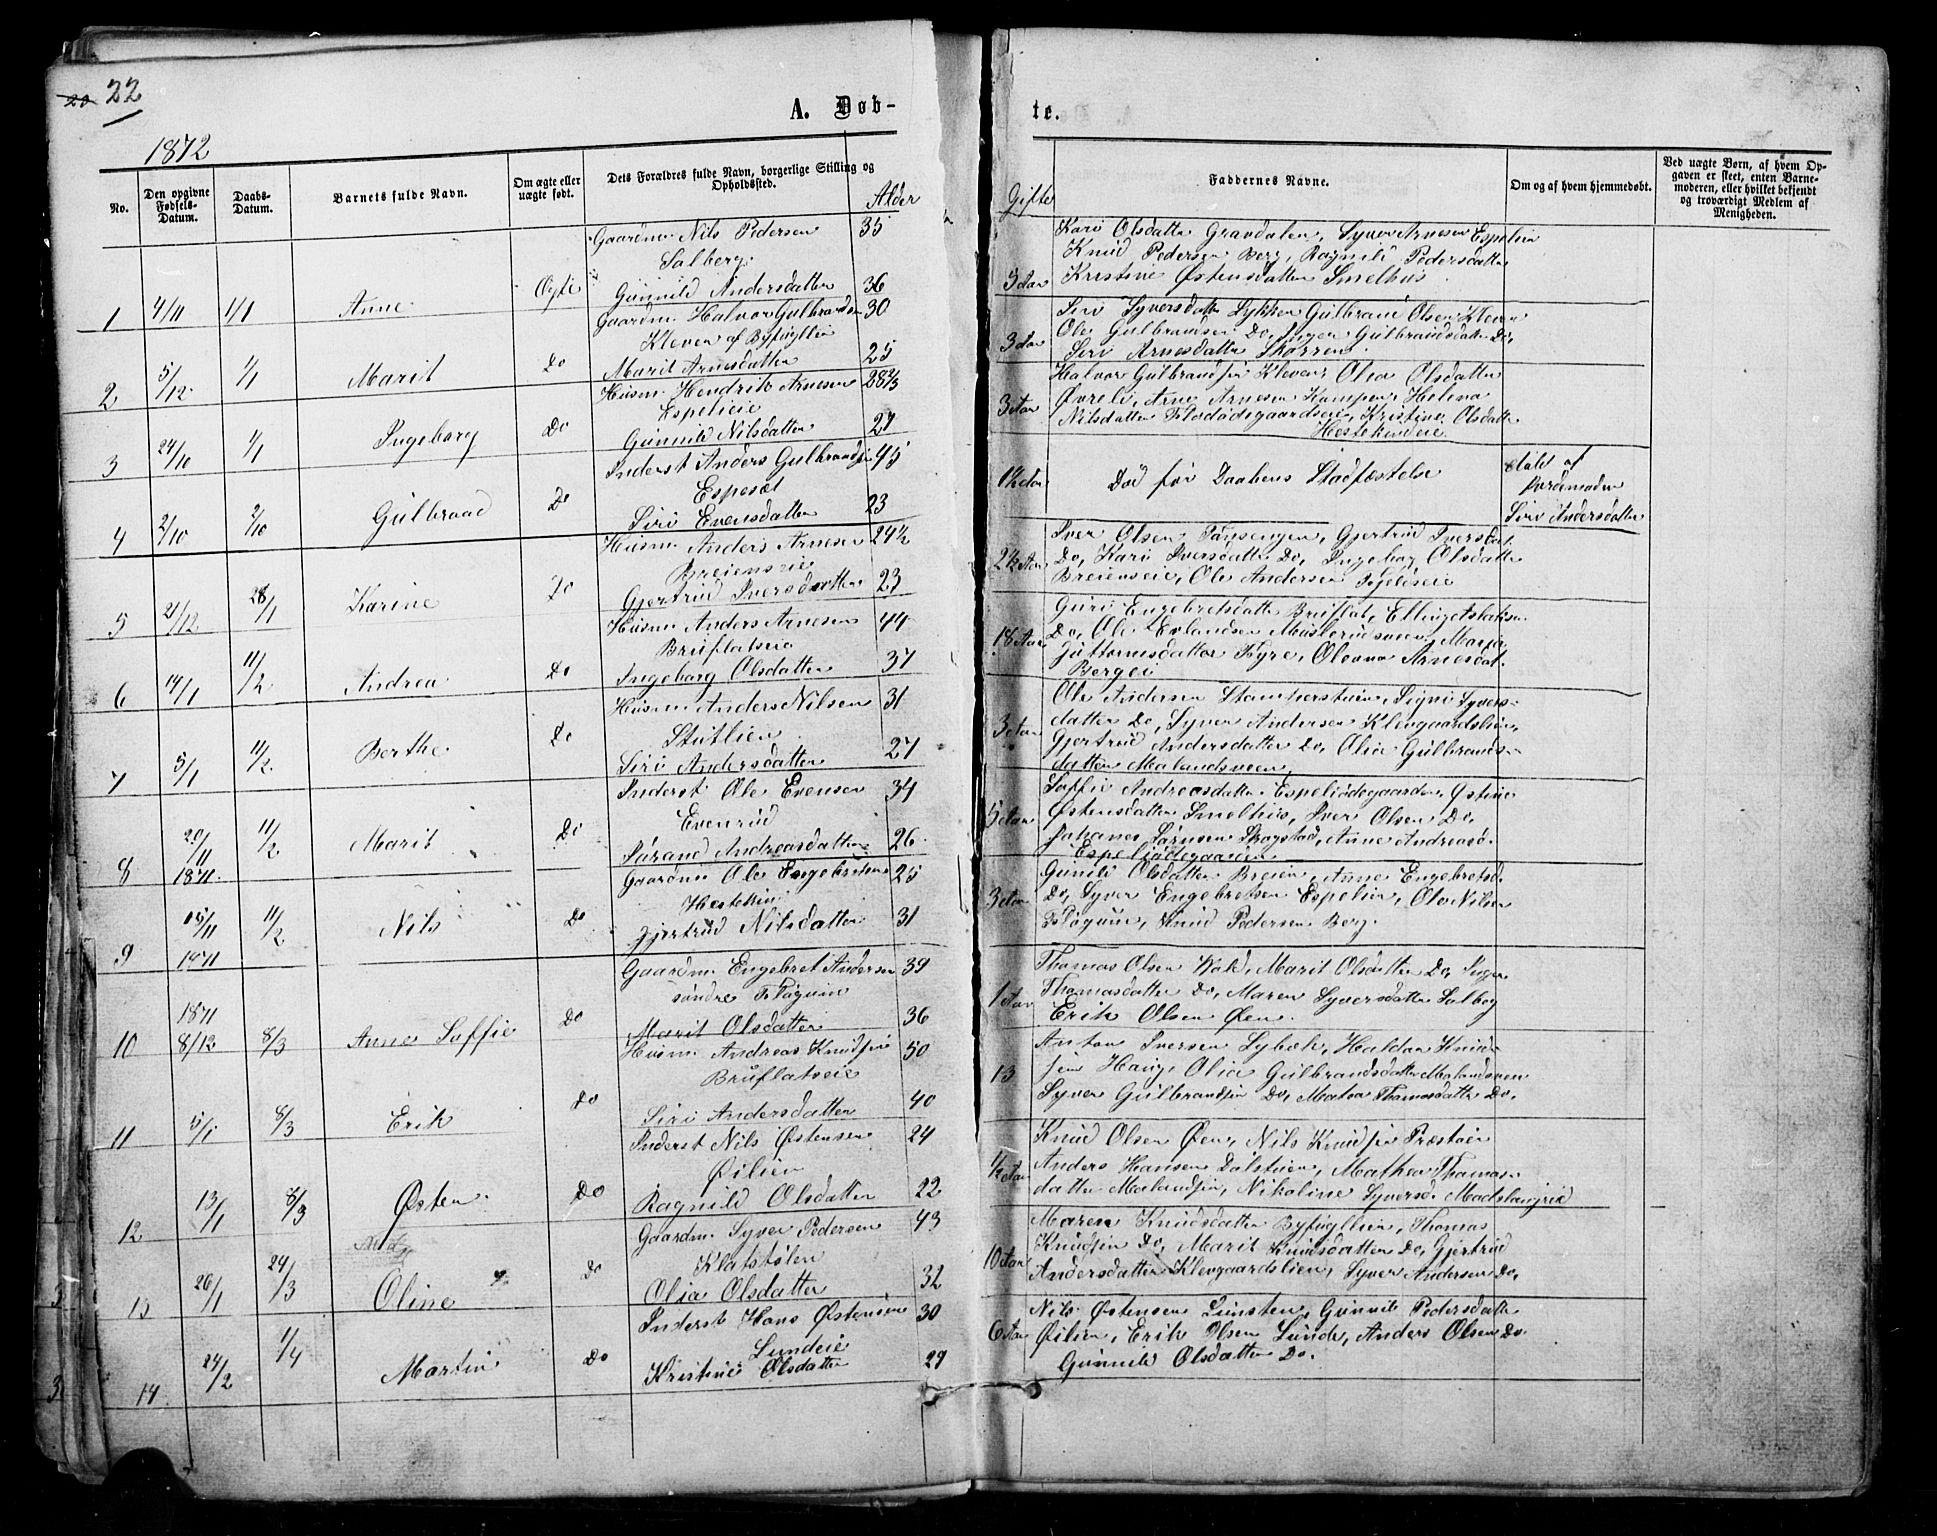 20 22
A. Døb-
te.
1872
No.
Den opgivne Fødsels-Datum.
Daabs-Datum.
Barnets fulde Navn.
Om ægte eller uægte født.
Dets Forældres fulde Navn, borgerlige Stilling og Opholdssted.
Alder
Gifte
Faddernes Navne.
Om og af hvem hjemmedøbt.
Ved uægte Børn, af hvem Opgaven er skeet, enten Barnemoderen, eller hvilket bekjendt og troværdigt Medlem af Menigheden.
Gaardm. Nils Pedersen 35
Salberg
1 4/11 1/1 Anne Ægte Gunnild Andersdatter 36
5 Aar
Kari Olsdatter Gravdalen, Syver Arnesen Espelien
Knud Pedersen Berg, Ragnild Pedersdatter
Kristine Østensdatter Smelhus
Gaardm. Halvor Gulbrandsen 30
Kleven af Byfuglien
2 5/12 1/1 Marit Do Marit Arnesdatter 25
3 Aar
Siri Syversdatter Lykken Gulbrand Olsen Kleven
Ole Gulbrandsen Do, Inger Gulbrandsdatter Do,
Siri Arnesdatter Skørren
Husm. Hendrik Arnesen 28 2/3
Espelieie
3 24/10 1/1 Ingeborg Do Gunnild Nilsdatter 27
3 Aar
Halvor Gulbrandsen Kleven, Olea Olsdatter
Øvreli, Arne Arnesen Kampen, Helena
Nilsdatter Flødødegaardseie, Kristine Olsdatter
Hestekindeie
Inderst Anders Gulbrandsen 45
Espeset
4 2/10 2/10 Gulbrand Do Siri Evensdatter 23
1½ Aar
Død før Daabens Stadfæstelse
døbt af
Jordemoder
Siri Andersdatter
Husm. Anders Arnesen 24½
Breienseie
5 21/12 28/1 Karine Do Gjertrud Iversdatter 23
2½ Aar
Iver Olsen Tansengen, Gjertrud Iversdat.
Do, Kari Iversdatter Do, Ingeborg Olsdatter
Breienseie, Ole Andersen Fjeldseie
Husm. Anders Arnesen 44
Bruflatseie
6 14/1 11/2 Andrea Do Ingeborg Olsdatter 37
18 Aar
Guri Engebretsdatter Bruflat, Elling
Do, Ole Erlandsen Muslerudsveen, Marja
Guttormsdatter Byre, Oleana Arnesdat.
Bergei
Husm Anders Nilsen 31
Stutlien
7 5/1 11/2 Berthe Do Siri Andersdatter 27
3 Aar
Ole Andersen Stamperstuen, Signi Syvers-
datter Do, Syver Andersen Klevgaardslien,
Gjertrud Andersdatter Do, Olia Gulbrands-
datter Malandsveen
Inderst Ole Evensen 34
Evenrud
8 20/11 1871. 11/2 Marit Do Jørand Andreasdatter 26
5 Aar
Saffie Andreasdatter Espeliødegaarden, Østine
Østensdatter Smelhus, Iver Olsen Do,
Johanes Sørnsen Skogstad, Anne Andreasd.
Espeliødegaarden
Gaardm. Ole Engebretsen 25
Hestekin
9 15/11 1871 11/2 Nils Do Gjertrud Nilsdatter 31
3 Aar
Gunild Olsdatter Breien, Anne Engebretsd.
Do, Syver Engebretsen Espelien, Ole Nilsen
Fløgum, Knud Pedersen Berg.
Gaardm. Engebret Andersen 39
søndre Fløgum
10 1871 8/12 8/3 Anne Saffie Do Marit Olsdatter 36
1 Aar
Thomas Olsen Wold, Marit Olsdatter Do, Inger
Thomasdatter Do, Maren Syversdatter Salberg
Erik Olsen Øen.
Husm. Andreas Knudsen 50
Bruflatseie
11 5/1 8/3 Erik Do Siri Andersdatter 40
13
Anton Iversen Lybæk, Haldor Knud-
sen Haug, Olia Gulbrandsdatter Malandsveen
Syver Gulbrandsen Do, Matea Thomasdatter Do.
Inderst Nils Østensen 24
Øilien
12 13/1 8/3 Østen Do Ragnild Olsdatter 22
½ Aar
Knud Olsen Øen, Nils Knudsen Præstøien
Anders Hansen Dølstuen, Mathea Thomas-
datter Malandsein, Nikoline Syversd.
Gaardm. Syver Pedersen 43
Klatstølen
13 26/1 24/3 Oline Do Olia Olsdatter 32
10 Aar
Maren Knudsdatter Byfuglien, Thomas
Knudsen Do, Marit Knudsdatter Do, Gjertrud
Andersdatter Klevgaardslien, Syver Andersen Do,
Inderst Hans Østensen 30
Lundeie
14 24/2 1/4 Martin Do Kristine Olsdatter 29
6 Aar
Nils Østensen Lunsten, Gunnild Pedersdatter
Øilien, Erik Olsen Lunde, Anders Olsen Do.
Gunnild Olsdatter Do.